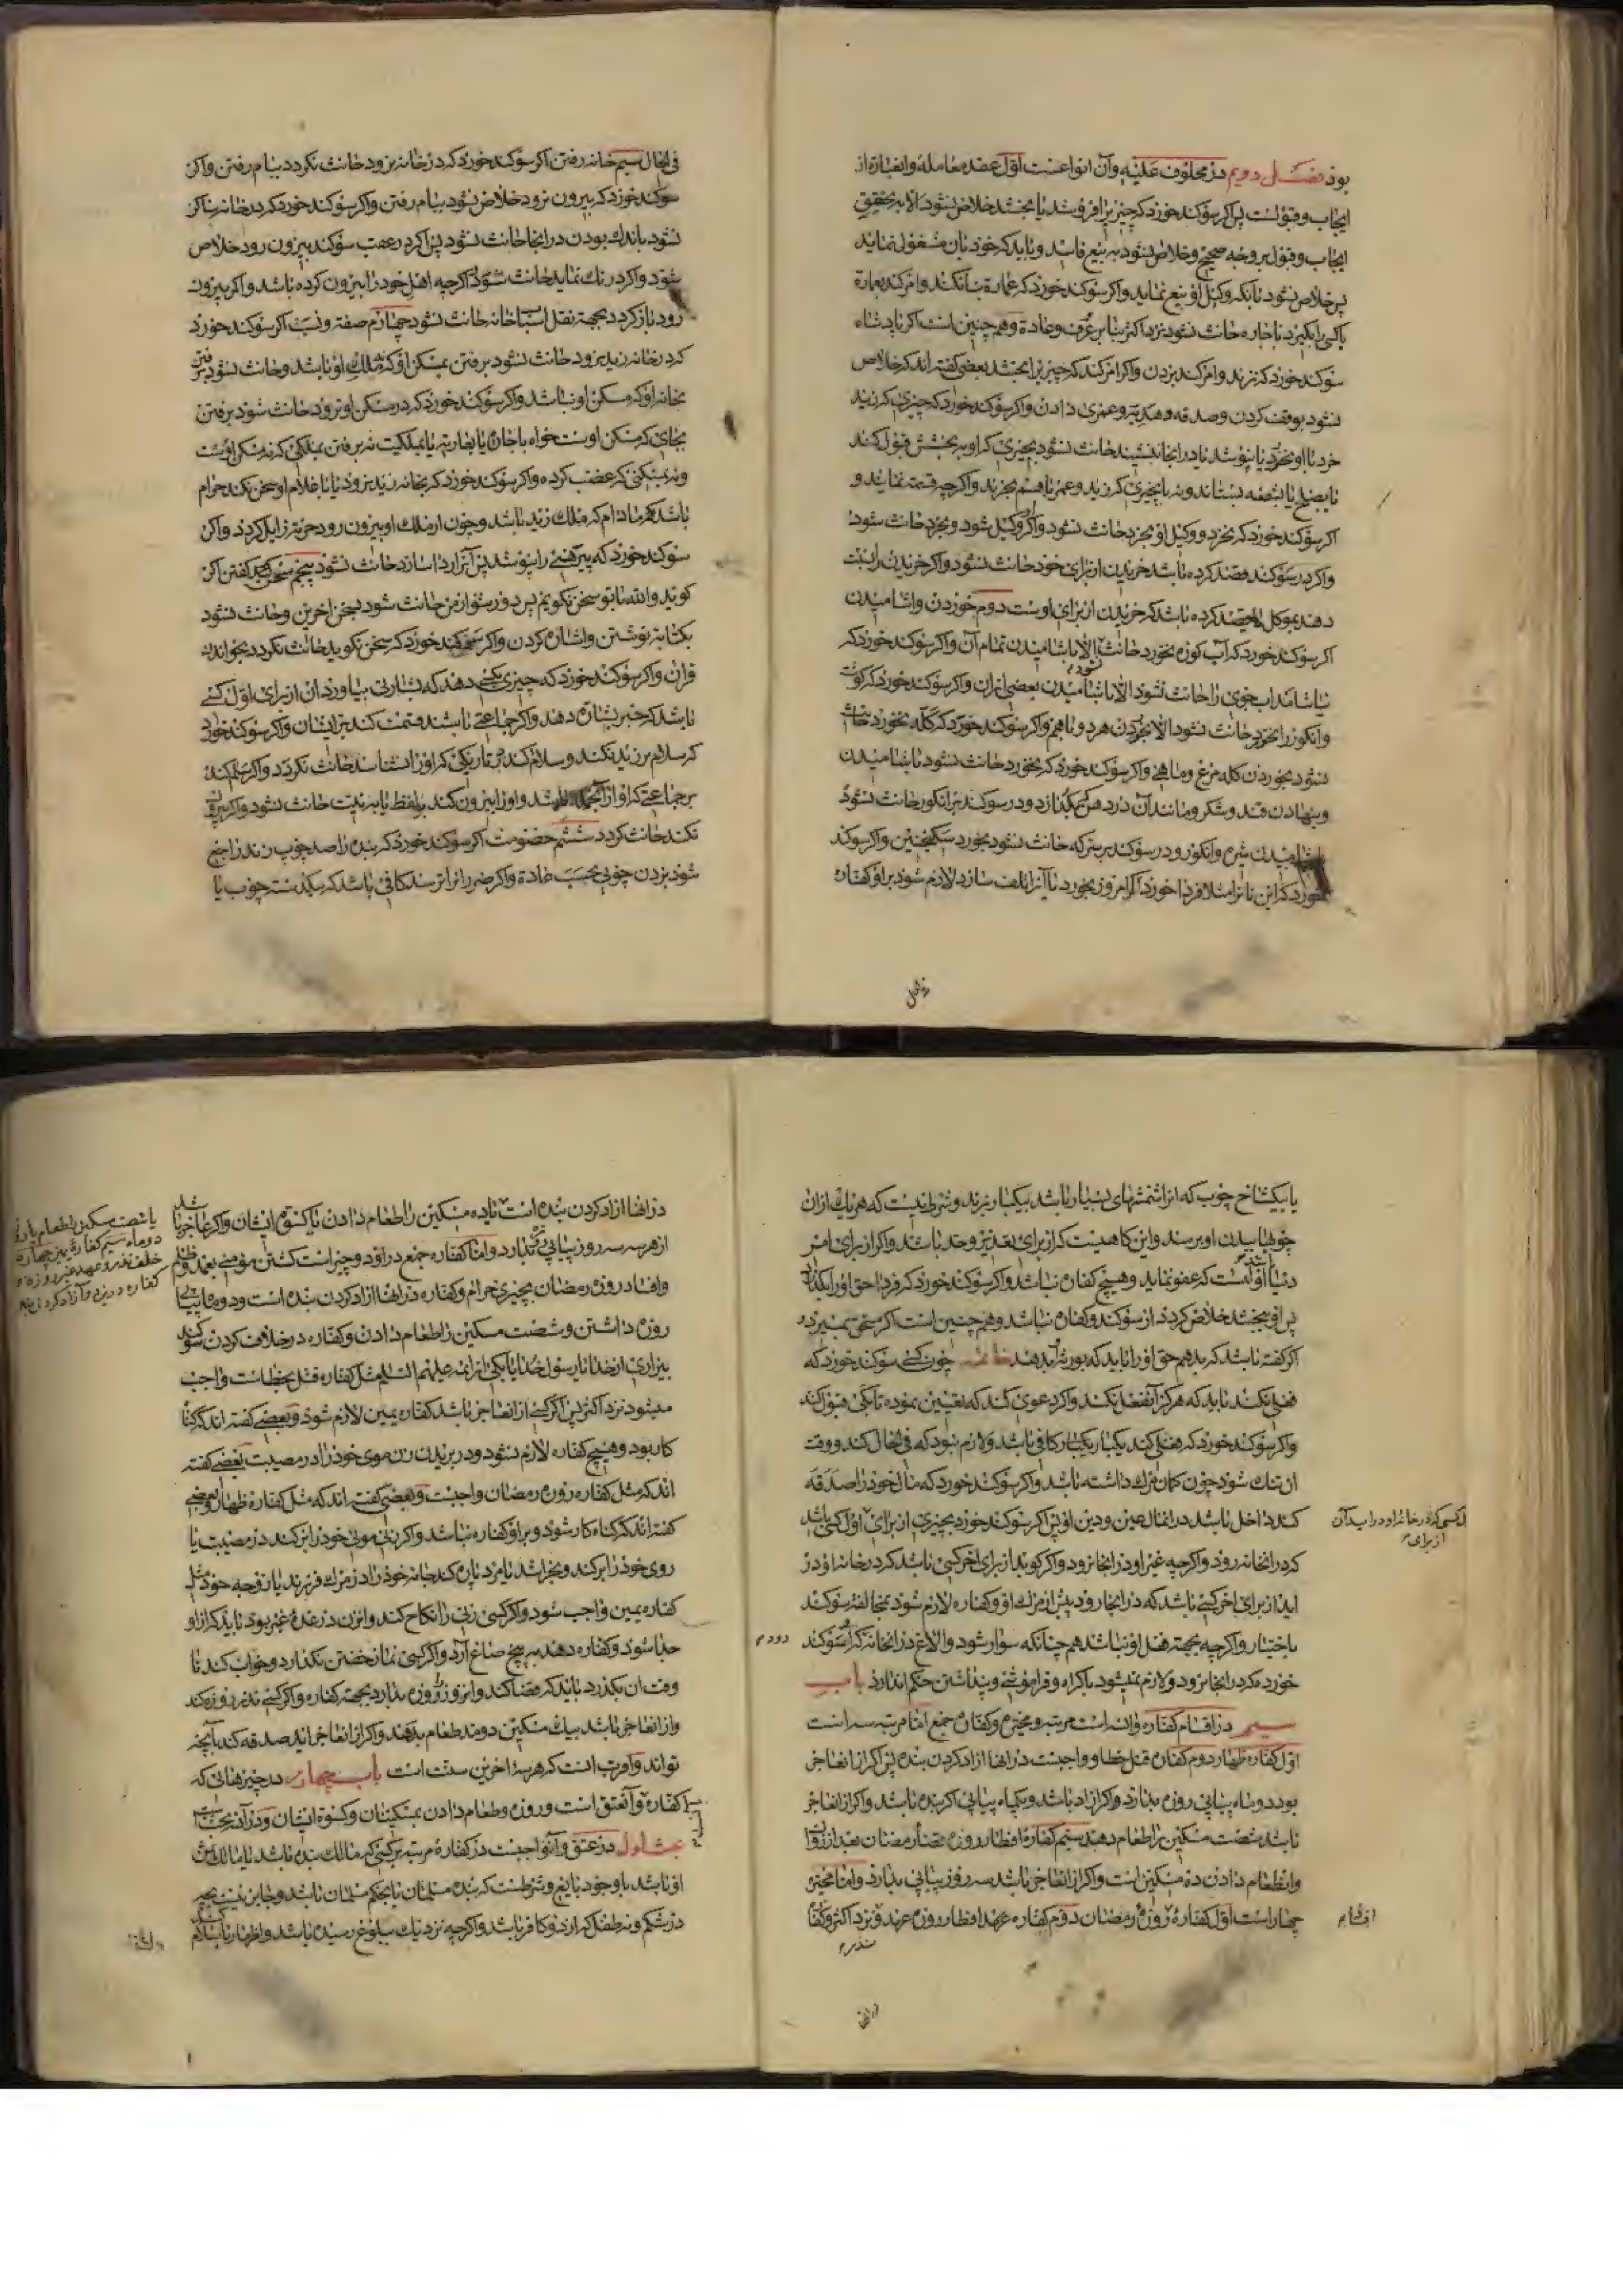 بود فصل دویم در محلوف علیه و آن انواعست اول عقد معامله و انعبارة از
ایجاب و قبولست پس اکر سوکند خورد که چیزیرا فروشد یا بخشد خلاص نشود الا بتحقیق
ایجاب و قبول بر وجه صحیح و خلاص نشود به بیع فاسد و باید که خود بان مشغول نماید
پس خلاص نشود بآنکه وکیل او بیع نماید و اکر سوکند خورد که عمارة بنا نکند و امر کند بعمارة
یا کسی را بکیرد باجاره حانث نشود نزد اکثر بنا بر عرف و عادة و همچنین است اکر پادشاه
سوکند خورد که نزند و امر کند بزدن و اکر امر کند که چیزیرا بخشد بعضی کفته اند که خلاص
نشود بوقف کردن و صدقه و هدیه و عمری دادن و اکر سوکند خورد که چیزی که زید
خرد یا او نخرد یا نپوشد یا در انجا ننشیند حانث نشود بچیزی که او به بخشش قبول کند
یا بصلح یا بشفعه بستاند و نه بچیزی که زید و عمر با هم بخرند و اکرچه قسمة نمایند و
اکر سوکند خورد که نخرد و وکیل او بخرد حانث نشود و اکر وکیل شود و بخرد حانث شود
و اکر در سوکند قصد کرده باشد خریدن از برای خود حانث نشود و اکر خریدن را نسبت
دهد بموکل قصد کرده باشد که خریدن از برای اوست دوم خوردن و اشامیدن
اکر سوکند خورد که آب کوزه نخورد حانث نشود الا باشامیدن تمام آن و اکر سوکند خورد که
نیاشامد اب جوی را حانث نشود الا باشامیدن بعضی ازان و اکر سوکند خورد که کوشت
و انکور را نخورد حانث نشود الا بخوردن هر دو با هم و اکر سوکند خورد که کله نخورد حانث
نشود بخوردن کله مرغ و ماهی و اکر سوکند خورد که نخورد حانث نشود باشامیدن
و بنهادن قند و شکر و مانند آن در دهن که بکدازد و در سوکند بر انکور حانث نشود
باشامیدن شیره انکور و در سوکند بر سرکه حانث نشود بخوردن سکنجبین و اکر سوکند
خورد که این نانرا مثلا فردا خورد اکر امروز بخورد یا آنرا تلف سازد لازم شود بر او کفاره
فی الحال سیم خانه رفتن اکر سوکند خورد که در خانه نرود حانث نکردد ببام رفتن و اکر
سوکند خورد که بیرون نرود خلاص نشود ببام رفتن و اکر سوکند خورد که در خانه ساکن
نشود باندک بودن در انجا حانث نشود پس اکر در عقب سوکند بیرون رود خلاص
شود و اکر درنک نماید حانث شود اکرچه اهل خود را بیرون کرده باشد و اکر بیرون
رود و باز کردد بجهة نقل اسباب خانه حانث نشود چهارم صفة و نسبت اکر سوکند خورد
که در خانه زید نرود حانث نشود برفتن بمسکن او که ملک او نباشد و حانث نشود برفتن
بخانه او که مسکن او نباشد و اکر سوکند خورد که در مسکن او نرود حانث شود برفتن
بجای که مسکن اوست خواه باجاره یا بعاریة یا بملکیت نه برفتن بملکی که نه مسکن اوست
و نه بمسکنی که غصب کرده و اکر سوکند خورد که بخانه زید نرود یا با غلام او سخن نکند حرام
باشد مادام که ملک زید باشد و چون از ملک او بیرون رود حرمة زایل کردد و اکر
سوکند خورد که پیرهنی را نپوشد پس آنرا ردا سازد حانث نشود پنجم سخن کفتن اکر
کوید والله با تو سخن نکویم پس دور شو از من حانث شود بسخن اخرین و حانث نشود
بکتابة نوشتن و اشاره کردن و اکر سوکند خورد که سخن نکوید حانث نکردد بخواندن
قران و اکر سوکند خورد که چیزی بکسی دهد که بشارتی بیاورد ان از برای اول کسی
باشد که خبر بشارة دهد و اکر جماعتی باشند قسمت کند بر ایشان و اکر سوکند خورد
که سلام بر زید نکند و سلام کند در تاریکی که او را نشناسد حانث نکردد و اکر سلام کند
بر جماعتی که او از آنجمله باشد و او را بیرون کند بلفظ یا به نیت حانث نشود و اکر بیرون
نکند حانث کردد ششم خصومت اکر سوکند خورد که بنده را صد چوب زند راجع
شود بزدن چوبی بحسب عادة و اکر ضرر انرا ترسد کافی باشد که بیکدسته چوب یا
یا بیکشاخ چوب که انرا شمشهای بسیار باشد بیکبار بزند و شرط نیست که هر یک ازان
چوبها ببدن او برسند و این کاهیست که از برای تعزیر و حد باشد و اکر از برای امر
دنیا باشد اولیست که عفو نماید و هیچ کفاره نباشد و اکر سوکند خورد که فردا حق او را بکذارد
پس او بخشد خلاص کردد از سوکند و کفاره نباشد و همچنین است اکر مستحق بمیرد و
اکر کفته باشد که بدهم حق او را باید که بورثه او بدهند خاتمه چون کسی سوکند خورد که
فعلی نکند باید که هرکز آنفعل نکند و اکر دعوی کند که تعیین نموده تا کی قبول کند
و اکر سوکند خورد که فعلی کند یکبار کافی باشد و لازم نبود که فی الحال کند و وقت
ان تنک شود چون کمان مرک داشته باشد و اکر سوکند خورد که مال خود را صدقه
کند داخل باشد در انمال عین و دین او پس اکر سوکند خورد بچیزی از برای اول کسی باشد
که در انخانه رود و اکرچه غیر او در انجا نرود و اکر کوید از برای اخر کسی باشد که در خانه او در
اید از برای اخر کسی باشد که در انجا رود پیش از مرک او و کفاره لازم شود بمخالفة سوکند
باختیار و اکرچه بجهة فعل او نباشد همچنانکه سوار شود و الاغ در انخانه که سوکند
خورده که در انجا نرود رود و لازم نمیشود باکراه و فراموشی و پنداشتن حکم اندارد باب
سیم در اقسام کفاره و انسه است مرتبه و مخیره و کفاره جمع اما مرتبه سه است
اول کفاره ظهار دوم کفاره قتل خطا و واجبست در انها ازاد کردن بنده پس اکر از انها عاجز
بود دو ماه پیاپی روزه بدارد و اکر ازاد باشد و یکماه پیاپی اکر بنده باشد و اکر از انعاجز
باشد شصت مسکین را طعام دهد سیم کفاره افطار روزه قضاء رمضان بعد از زوال
و انطعام دادن ده مسکین است و اکر از انعاجز باشد سه روز پیاپی بدارد و اما مخیره
چهار است اول کفاره روزه رمضان دوم کفاره عهد و افطار روزه عهد و نزد اکثر و کفاره
نذر
لکسی که در خانه او در اید آن
از برای
اقسام
در انها ازاد کردن بنده است یا ده مسکین را طعام دادن یا کسوة ایشان و اکر عاجز باشد
از هر سه سه روز پیاپی روزه بدارد و اما کفاره جمع در او دو چیز است کشتن مؤمنی بعمد و ظلم
و افساد روزه رمضان بچیزی حرام و کفاره در انها ازاد کردن بنده است و دو ماه پیاپی
روزه داشتن و شصت مسکین را طعام دادن و کفاره در خلاف کردن سوکند
بیزاری از خدا یا رسول خدا یا یکی از ایمه علیهم السلام مثل کفاره قتل بخطاست واجب
میشود نزد اکثر پس اکر کسی از انعاجز باشد کفاره یمین لازم شود و بعضی کفته اند که کناه
کار بود و هیچ کفاره لازم نشود و در بریدن زن موی خود را در مصیبت بعضی کفته
اند که مثل کفاره روزه رمضان واجبست و بعضی کفته اند که مثل کفاره ظهار و بعضی
کفته اند که کناه کار شود و بر او کفاره نباشد و اکر زنی موی خود را بر کند در مصیبت یا
روی خود را بر کند و بخراشد یا مرد پاره کند جامه خود را در مرک فرزند یا زوجه خود مثل
کفاره یمین واجب شود و اکر کسی زنی را نکاح کند و انزن در عده غیر بود باید که از او
جدا شود و کفاره دهد به پنج صاع آرد و اکر کسی نماز خفتن نکذارد و خواب کند تا
وقت ان بکذرد باید که قضا کند و انروز را روزه بدارد بجهة کفاره و اکر کسی نذر روزه کند
و از انعاجز باشد بیک مسکین دو مد طعام بدهد و اکر از انعاجز اید صدقه کند بآنچه
تواند و اقرب انست که هر سه اخرین سنت است باب چهارم در چیزهائی که
کفاره و آنعتق است و روزه و طعام دادن بمسکینان و کسوة ایشان و در آن بحثهاست
بحث اول در عتق و آنواجبست در کفاره مرتبه بر کسی که مالک بنده باشد یا مالک ثمن
او باشد با وجود بایع و شرطست که بنده مسلمان یا بحکم مسلمان باشد و جایز نیست بچه
در شکم و نه طفل که از دو کافر باشد و اکرچه نزدیک ببلوغ رسیده باشد و اظهار اسلام کند
یا شصت مسکین را طعام یا روزه
دو ماه سیم کفاره یمین چهارم
خلف نذر و عهد غیر روزه و